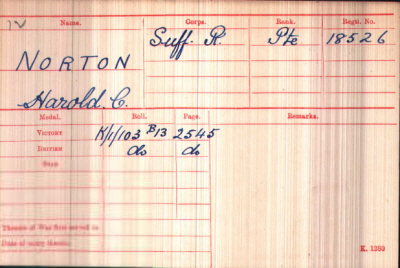 Name. Corps. Rank. Regtl. No.
NORTON Suff. R. Pte 18526
Harold. C.
Medal. Roll. Page. Remarks.
VICTORY K/1/103 B13 2545
BRITISH do do
STAR
Theatre of War first served in
Date of entry therein
K. 1380